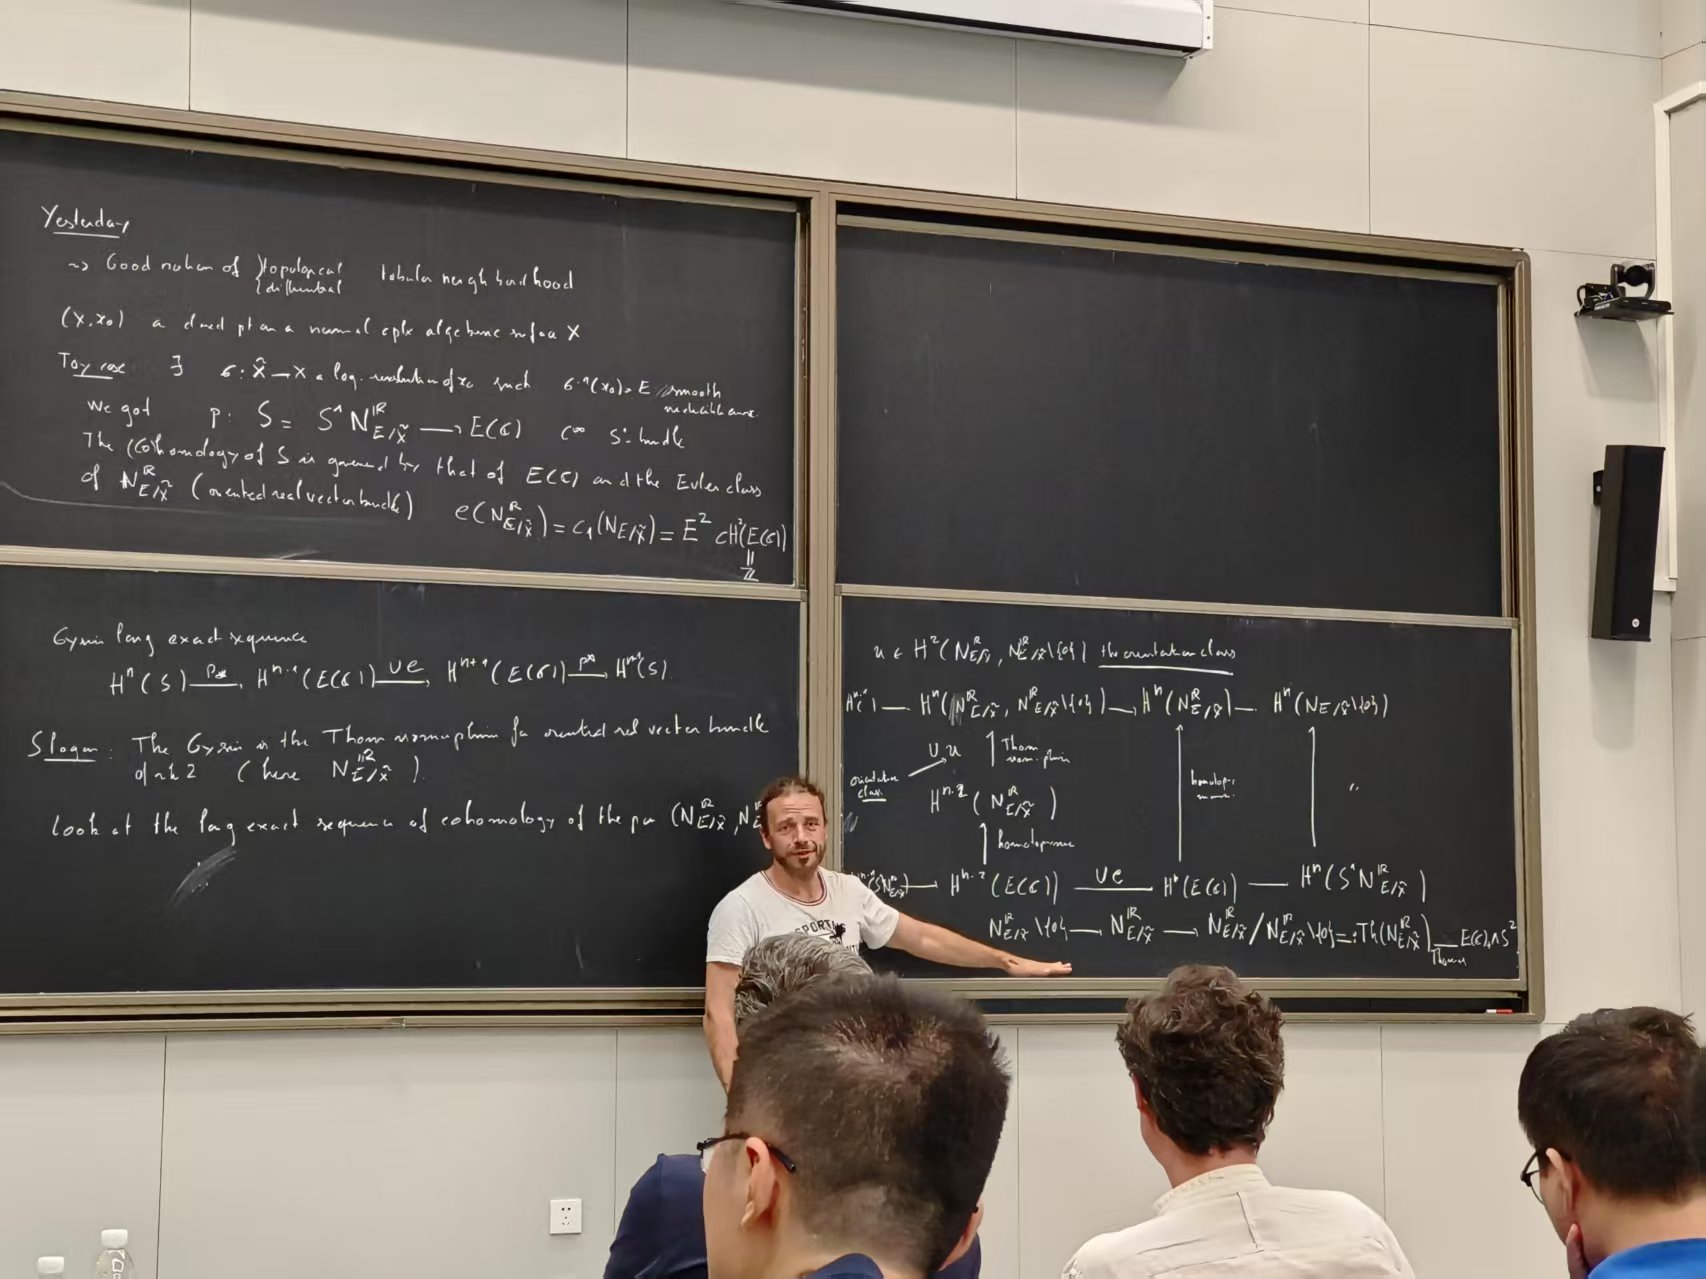 Yesterday
~> Good notion of { topological tubular neighborhood
{ differential
(X, x₀) a closed pt on a normal cplx algebraic surface X
Toy case ∃ σ: X̃ → X a log. resolution of x₀ such σ⁻¹(x₀) = E smooth
irreducible curve.
We got p: S = S¹ N^ℝ_{E/X̃} → E(ℂ) C^∞ S¹-bundle
The (co)homology of S is governed by that of E(ℂ) and the Euler class
of N^ℝ_{E/X̃} (oriented real vector bundle) e(N^ℝ_{E/X̃}) = c₁(N_{E/X̃}) = E² ∈ H²(E(ℂ))
||
ℤ
Gysin long exact sequence
Hⁿ(S) —p_*→ Hⁿ⁻¹(E(ℂ)) —∪e→ Hⁿ⁺¹(E(ℂ)) —p*→ Hⁿ⁺¹(S)
Slogan: The Gysin is the Thom isomorphism for oriented real vector bundle
of rk 2 (here N^ℝ_{E/X̃}).
Look at the long exact sequence of cohomology of the pair (N^ℝ_{E/X̃}, N
u ∈ H²(N^ℝ_{E/X̃}, N^ℝ_{E/X̃}\{0}) the orientation class
— Hⁿ(N^ℝ_{E/X̃}, N^ℝ_{E/X̃}\{0}) → Hⁿ(N^ℝ_{E/X̃}) — Hⁿ(N_{E/X̃}\{0})
∪u ↑ Thom
isomorphism
orientation
class
homotopy
invar.
"
Hⁿ⁻²(N^ℝ_{E/X̃})
↑ homotopy invar
— Hⁿ⁻²(E(ℂ)) —∪e— Hⁿ(E(ℂ)) — Hⁿ(S¹N^ℝ_{E/X̃})
N^ℝ_{E/X̃}\{0} → N^ℝ_{E/X̃} → N^ℝ_{E/X̃}/N^ℝ_{E/X̃}\{0} =: Th(N^ℝ_{E/X̃}) — E(ℂ)₊∧S²
Thom
SPORT